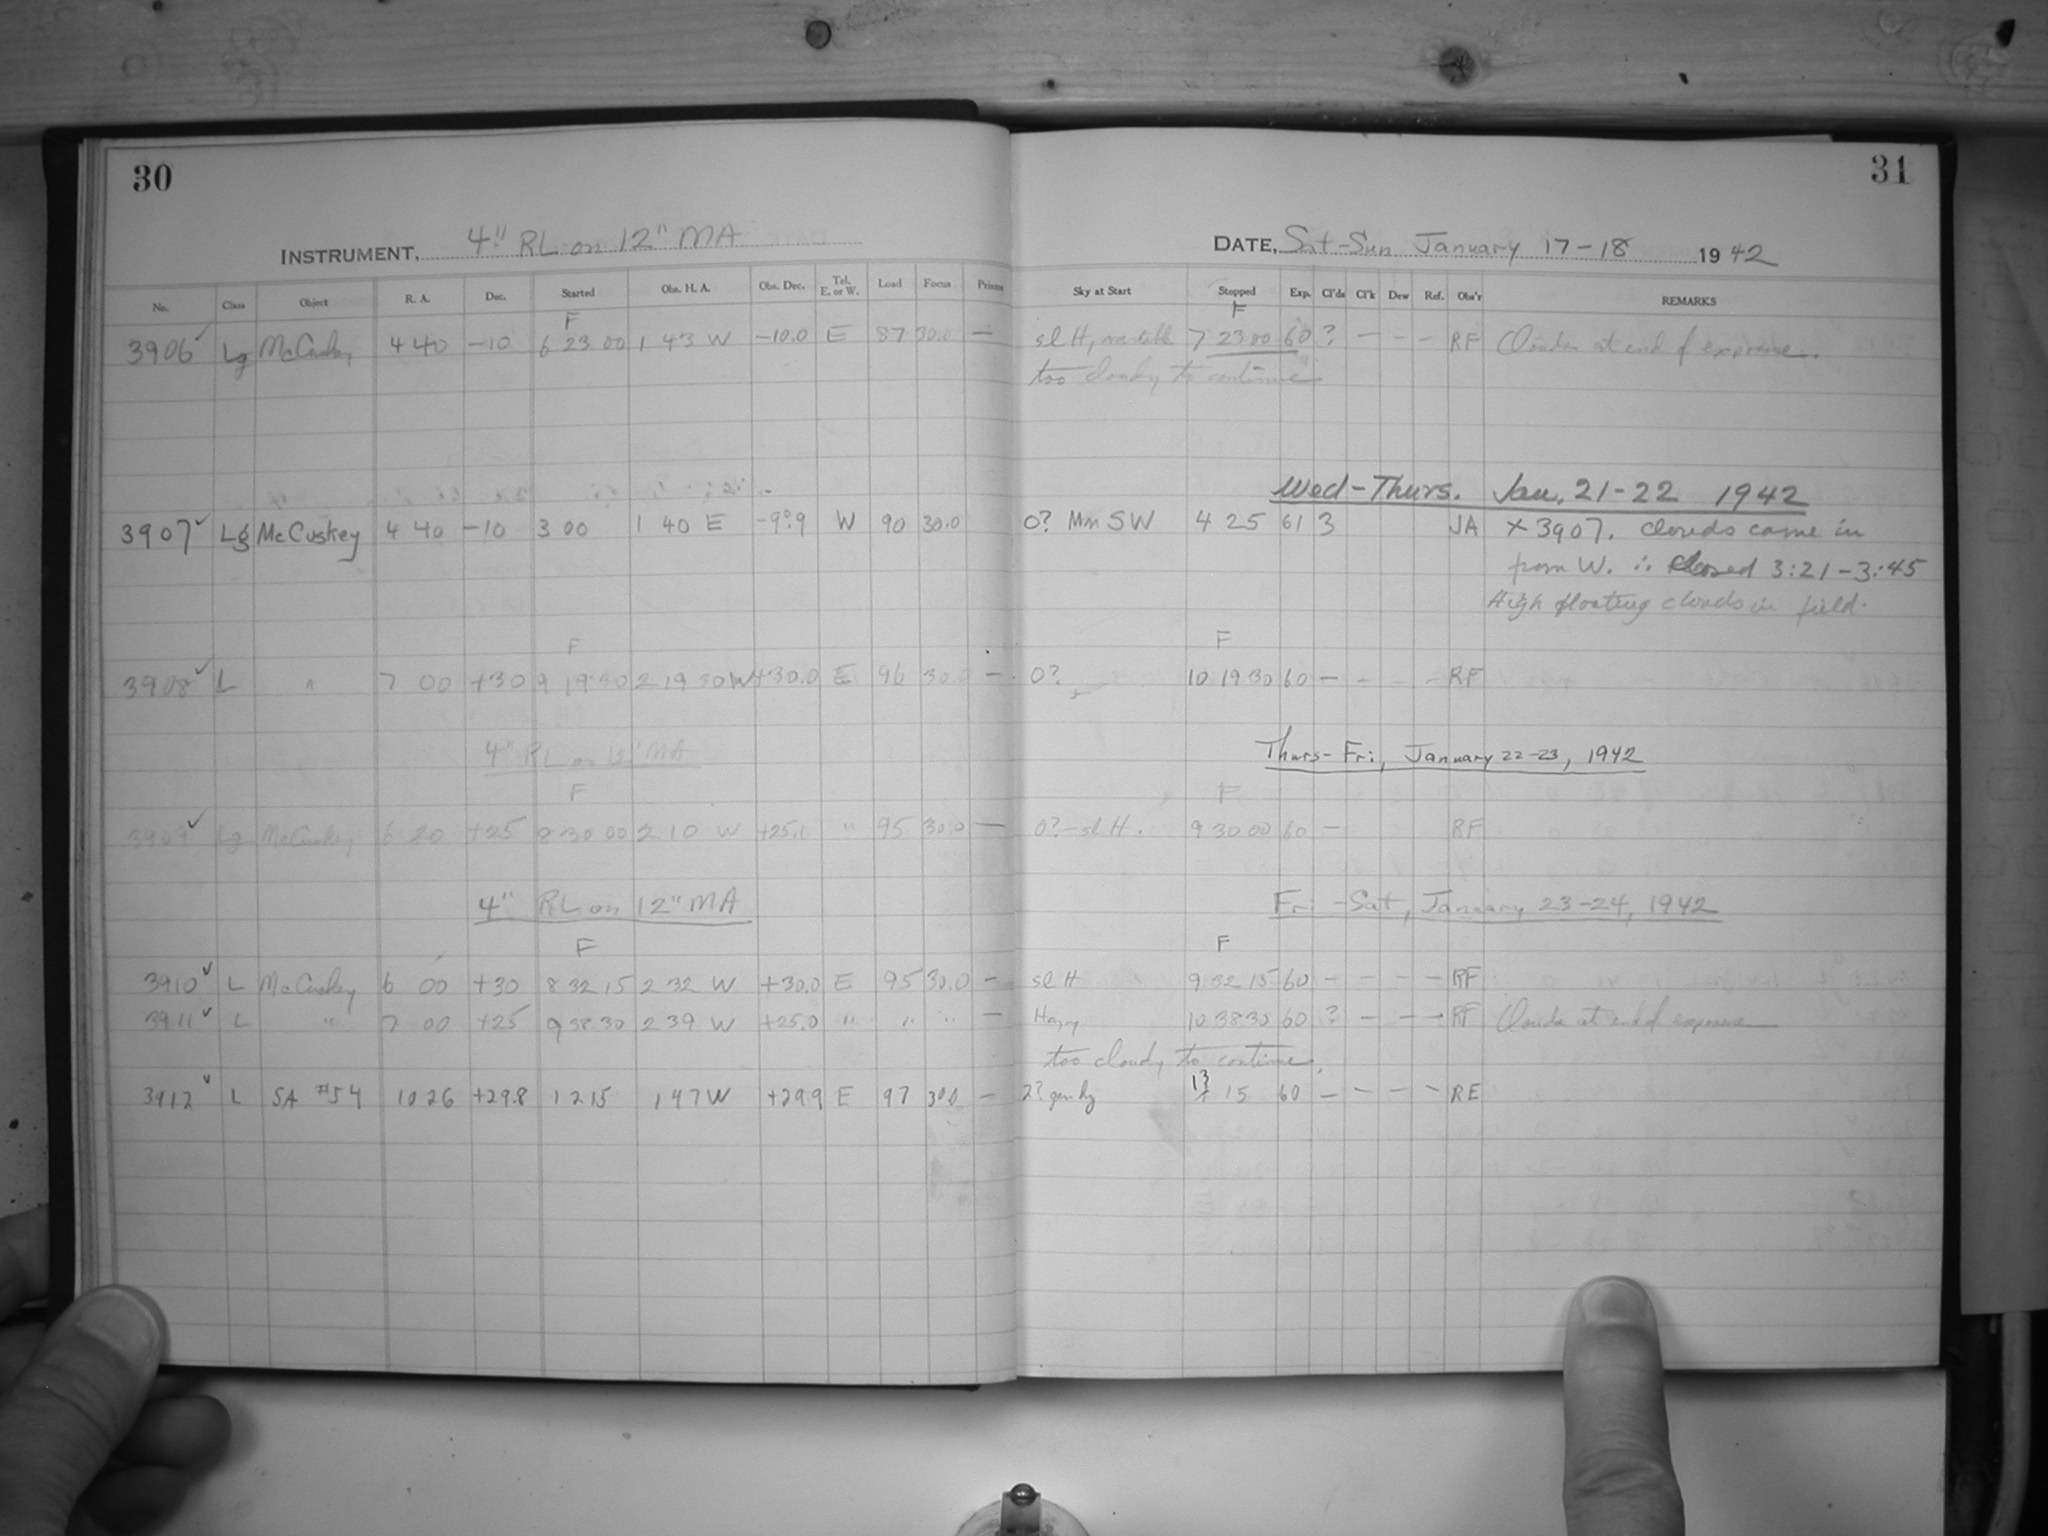 30
31
INSTRUMENT, 4" RL on 12" MA
DATE, Sat-Sun January 17-18 1942
No. Class Object R. A. Dec. Started Obs. H. A. Obs. Dec. Tel. E. or W. Load Focus Prisms Sky at Start Stopped Exp. Cl'ds Cl'k Dew Ref. Obs'r REMARKS
F F
3906 ✓ Lg McCuskey 4 40 -10 6 23 00 1 43 W -10.0 E 87 30.0 — sl H, variable 7 23 00 60 ? — — — RF Clouds at end of exposure.
too cloudy to continue
Wed-Thurs. Jan. 21-22 1942
3907 ✓ Lg McCuskey 4 40 -10 3 00 1 40 E -9°.9 W 90 30.0 0? Mn SW 4 25 61 3 JA × 3907. clouds came in
from W. ∴ closed 3:21-3:45
High floating clouds in field.
F F
3908 ✓ L " 7 00 +30 9 19 30 2 19 30 W +30.0 E 96 30.0 — 0? 10 19 30 60 — - - - RF
4" RL on 12" MA Thurs-Fri, January 22-23, 1942
F F
3909 ✓ Lg McCuskey 6 20 +25 8 30 00 2 10 W +25.1 " 95 30.0 — 0?-sl H. 9 30 00 60 — RF
4" RL on 12" MA Fri-Sat, January 23-24, 1942
F F
3910 ✓ L McCuskey 6 00 +30 8 32 15 2 32 W +30.0 E 95 30.0 — sl H 9 32 15 60 — — — — RF
3911 ✓ L " 7 00 +25 9 38 30 2 39 W +25.0 " " " — Hazy 10 38 30 60 ? — — — RF Clouds at end of exposure
too cloudy to continue.
3912 ✓ L SA #54 10 26 +29.8 12 15 1 47 W +29.9 E 97 30.0 — 2? gen hy 13 15 60 — — — — RE